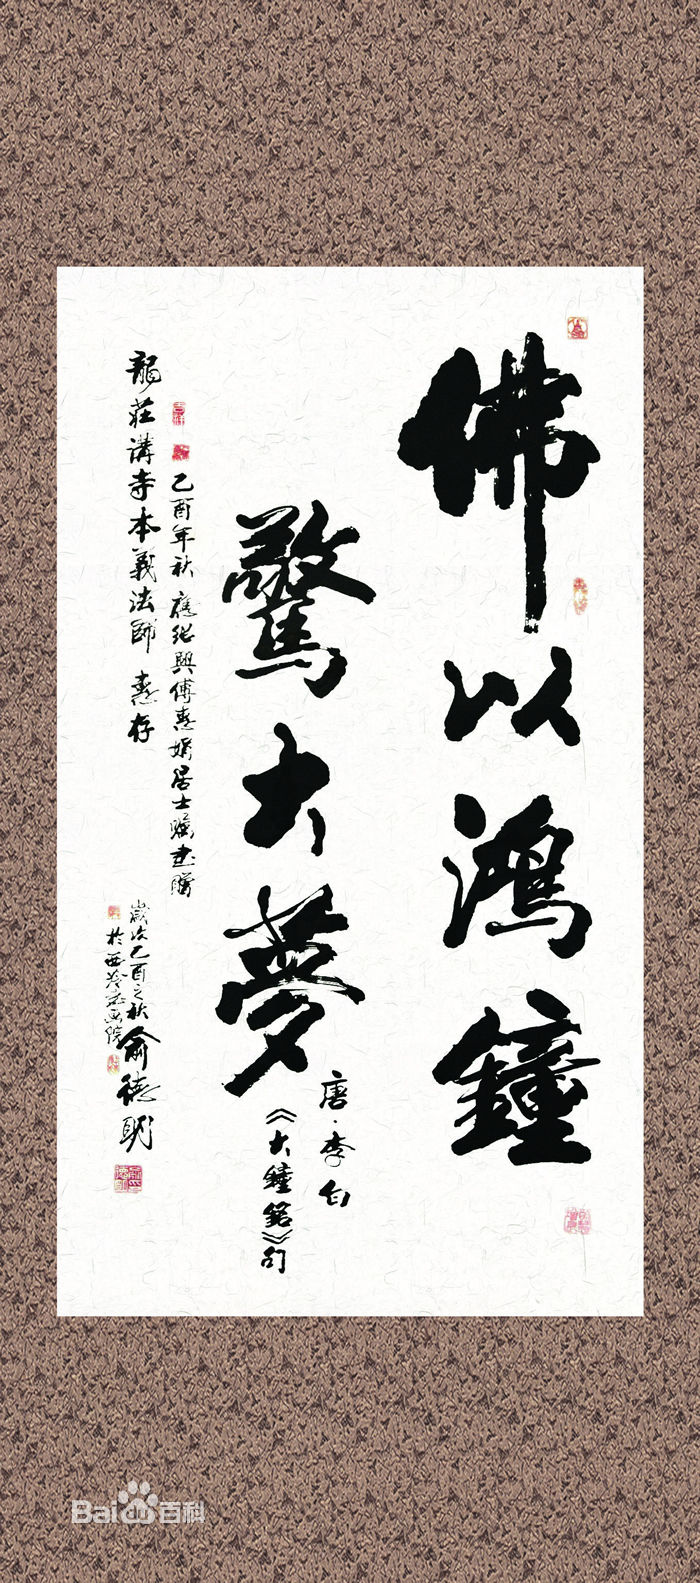 佛以鴻鐘
驚大夢
唐·李白
《大鐘銘》句
乙酉年秋應張興傅惠娟居士囑書贈
龍莊講寺本義法師惠存
歲次乙酉之秋俞德明
於西泠書畫院
Bai百科